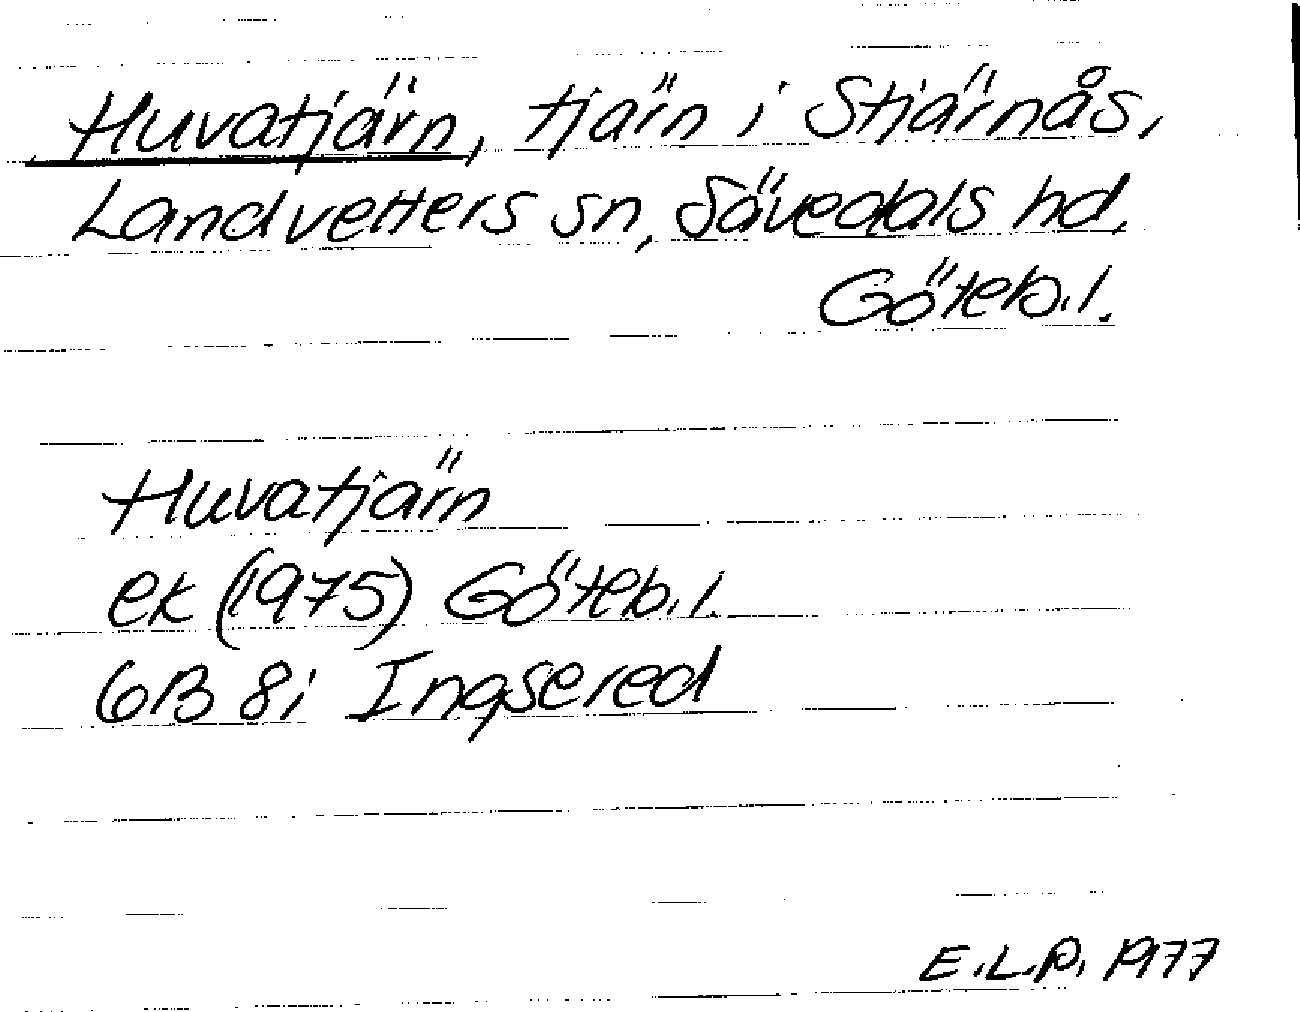 Huvatjärn, tjärn i Stjärnås,
Landvetters sn, Sävedals hd,
Göteb.l.
Huvatjärn
ek (1975) Göteb.l.
6B 8i Ingsered
E.L.P. 1977